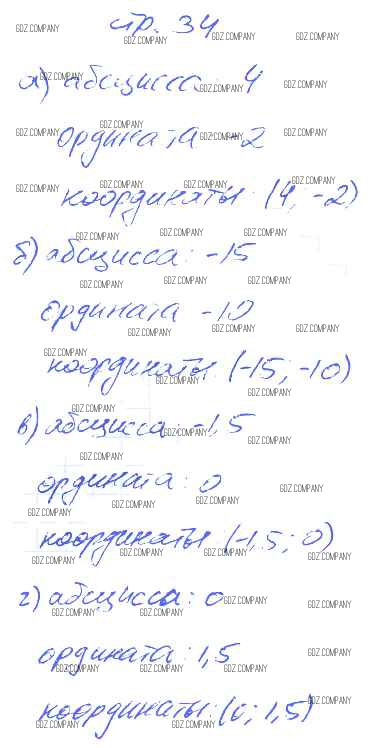 стр. 34
а) абсцисса: 4
ордината -2
координаты: (4; -2)
б) абсцисса: -15
ордината -10
координаты: (-15; -10)
в) абсцисса: -1,5
ордината: 0
координаты: (-1,5; 0)
г) абсцисса: 0
ордината: 1,5
координаты: (0; 1,5)
GDZ.COMPANY